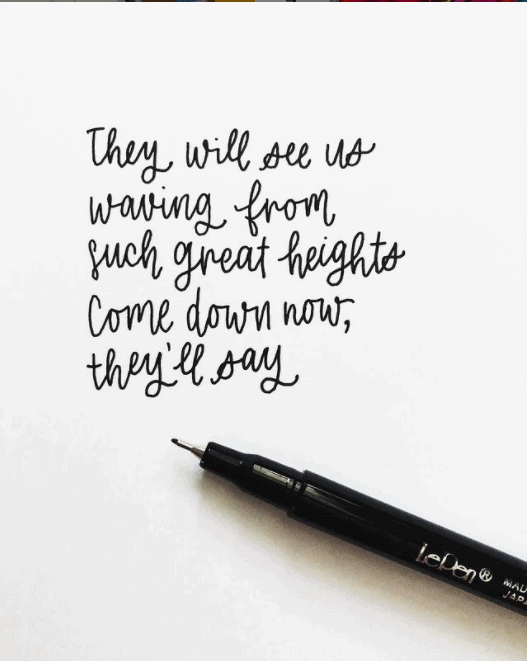 They will see us
waving from
such great heights
Come down now,
they'll say
LePen®
MAD
JAPA